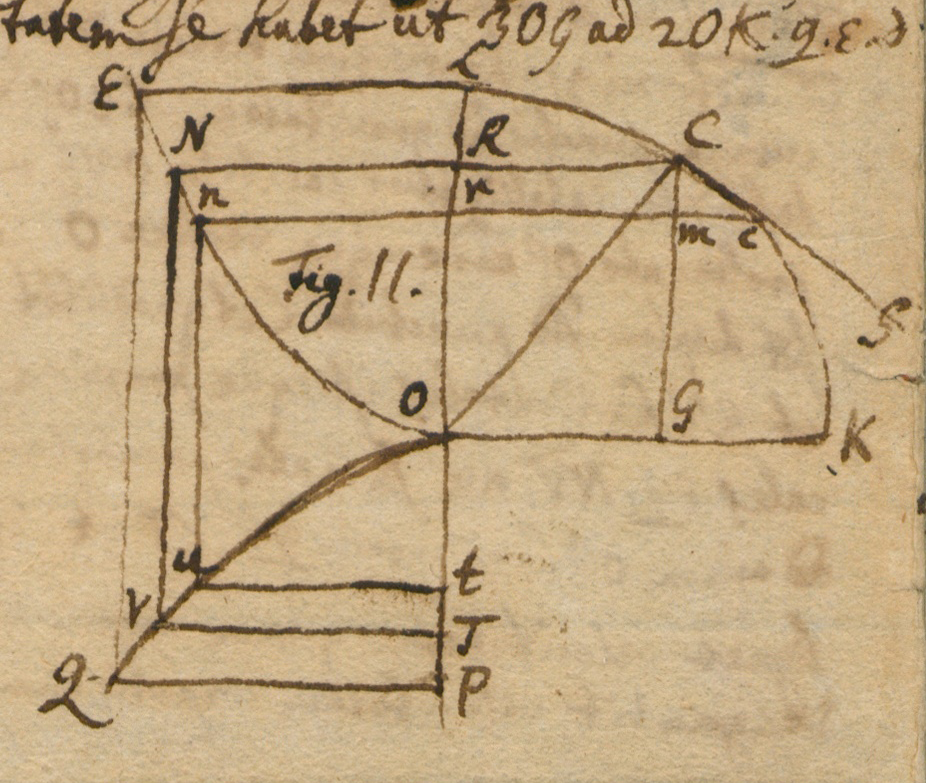 tatem se habet ut 3OG ad 2OK. q.e.d.
E L
N R C
n r
m c
Fig. 11.
S
O G K
u t
V T
Q P